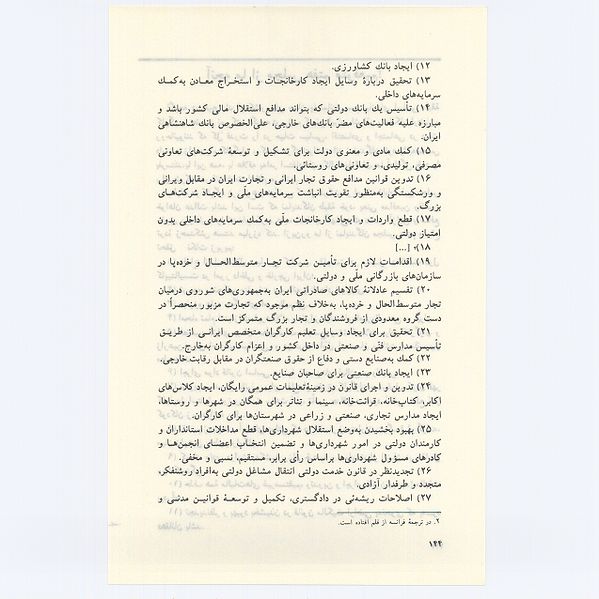 ۱۲) ایجاد بانك كشاورزی.
۱۳) تحقیق دربارهٔ وسایل ایجاد كارخانجات و استخراج معادن به‌كمك
سرمایه‌های داخلی.
۱۴) تأسیس یك بانك دولتی كه بتواند مدافع استقلال مالی كشور باشد و
مبارزه علیه فعالیت‌های مضرّ بانك‌های خارجی، علی‌الخصوص بانك شاهنشاهی
ایران.
۱۵) كمك مادی و معنوی دولت برای تشكیل و توسعهٔ شركت‌های تعاونی
مصرفی، تولیدی، و تعاونی‌های روستائی.
۱۶) تدوین قوانین مدافع حقوق تجار ایرانی و تجارت ایران در مقابل ویرانی
و ورشكستگی به‌منظور تقویت انباشت سرمایه‌های ملّی و ایجاد شركت‌های
بزرگ.
۱۷) قطع واردات و ایجاد كارخانجات ملّی به‌كمك سرمایه‌های داخلی بدون
امتیاز دولتی.
۱۸)۲ [...]
۱۹) اقدامات لازم برای تأمین شركت تجار متوسط‌الحال و خرده‌پا در
سازمان‌های بازرگانی ملّی و دولتی.
۲۰) تقسیم عادلانهٔ كالاهای صادراتی ایران به‌جمهوری‌های شوروی درمیان
تجار متوسط‌الحال و خرده‌پا، به‌خلاف نظم موجود كه تجارت مزبور منحصراً در
دست گروه معدودی از فروشندگان و تجار بزرگ متمركز است.
۲۱) تحقیق برای ایجاد وسایل تعلیم كارگران متخصص ایرانی از طریق
تأسیس مدارس فنّی و صنعتی در داخل كشور و اعزام كارگران به‌خارج.
۲۲) كمك به‌صنایع دستی و دفاع از حقوق صنعتگران در مقابل رقابت خارجی.
۲۳) ایجاد بانك صنعتی برای صاحبان صنایع.
۲۴) تدوین و اجرای قانون در زمینهٔ‌تعلیمات عمومی رایگان، ایجاد كلاس‌های
اكابر، كتاب‌خانه، قرائت‌خانه، سینما و تئاتر برای همگان در شهرها و روستاها،
ایجاد مدارس تجاری، صنعتی و زراعی در شهرستان‌ها برای كارگران.
۲۵) بهبود بخشیدن به‌وضع استقلال شهرداری‌ها، قطع مداخلات استانداران و
كارمندان دولتی در امور شهرداری‌ها و تضمین انتخاب اعضای انجمن‌ها و
كادرهای مسؤول شهرداری‌ها براساس رأی برابر، مستقیم، نسبی و مخفی.
۲۶) تجدیدنظر در قانون خدمت دولتی انتقال مشاغل دولتی به‌افراد روشنفكر،
متجدد و طرفدار آزادی.
۲۷) اصلاحات ریشه‌ئی در دادگستری، تكمیل و توسعهٔ قوانین مدنی و
۲. در ترجمهٔ فرانسه از قلم افتاده است.
۱۴۴